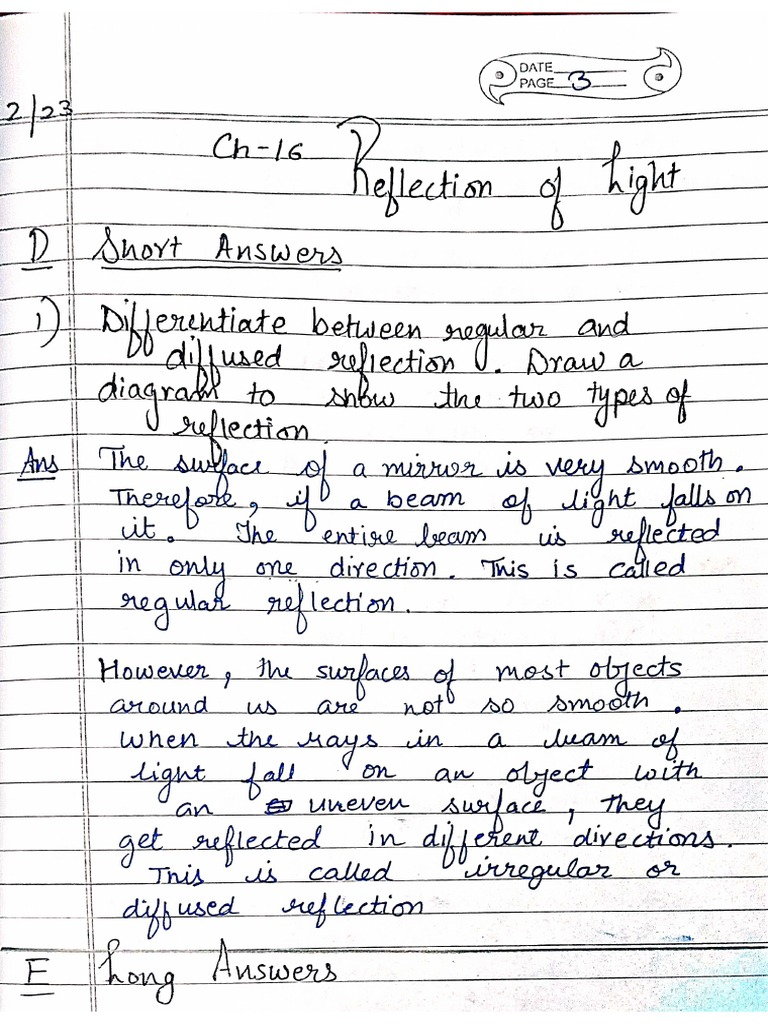 DATE
PAGE 3
2/23
Ch-16 Reflection of Light
D Short Answers
i) Differentiate between regular and
diffused reflection. Draw a
diagram to show the two types of
reflection.
Ans The surface of a mirror is very smooth.
Therefore, if a beam of light falls on
it. The entire beam is reflected
in only one direction. This is called
regular reflection.
However, the surfaces of most objects
around us are not so smooth.
When the rays in a beam of
light fall on an object with
an uneven surface, they
get reflected in different directions.
This is called irregular or
diffused reflection
E Long Answers